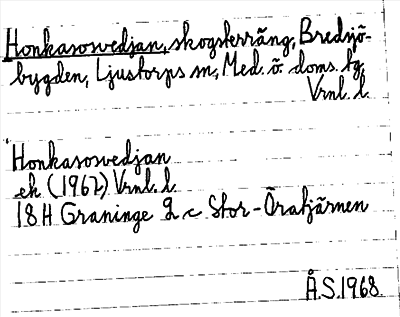 Honkasosvedjan, skogsterräng, Bredsjö-
bygden, Ljustorps sn, Med. ö. doms. tg,
Vrnl. l.
Honkasosvedjan
ek (1962) Vrnl. l.
18H Graninge 2 c Stor-Öratjärnen
Å.S. 1968.